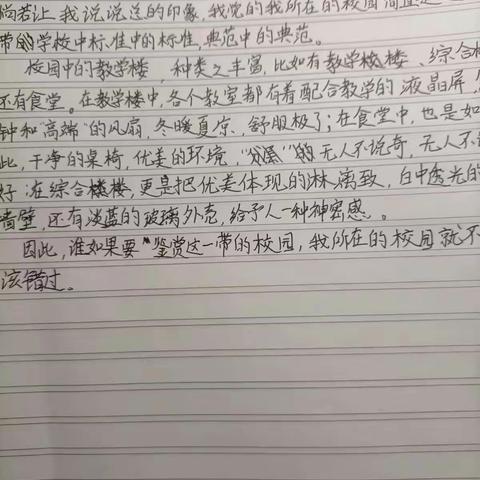 倘若让我说说总的印象，我觉的我所在的校园简直是
带的学校中标准中的标准，典范中的典范。
校园中的教学楼，种类之丰富，比如有教学楼、综合楼
还有食堂。在教学楼中，各个教室都有着配合教学的液晶屏，
钟和"高端"的风扇，冬暖夏凉、舒服极了；在食堂中，也是如
此，干净的桌椅，优美的环境，的无人不说奇，无人不
好；在综合楼，更是把优美体现的淋漓致，白中透光的
墙壁，还有淡蓝的玻璃外壳，给予人一种神密感。
因此，谁如果要"鉴赏这一带的校园，我所在的校园就不
该错过。